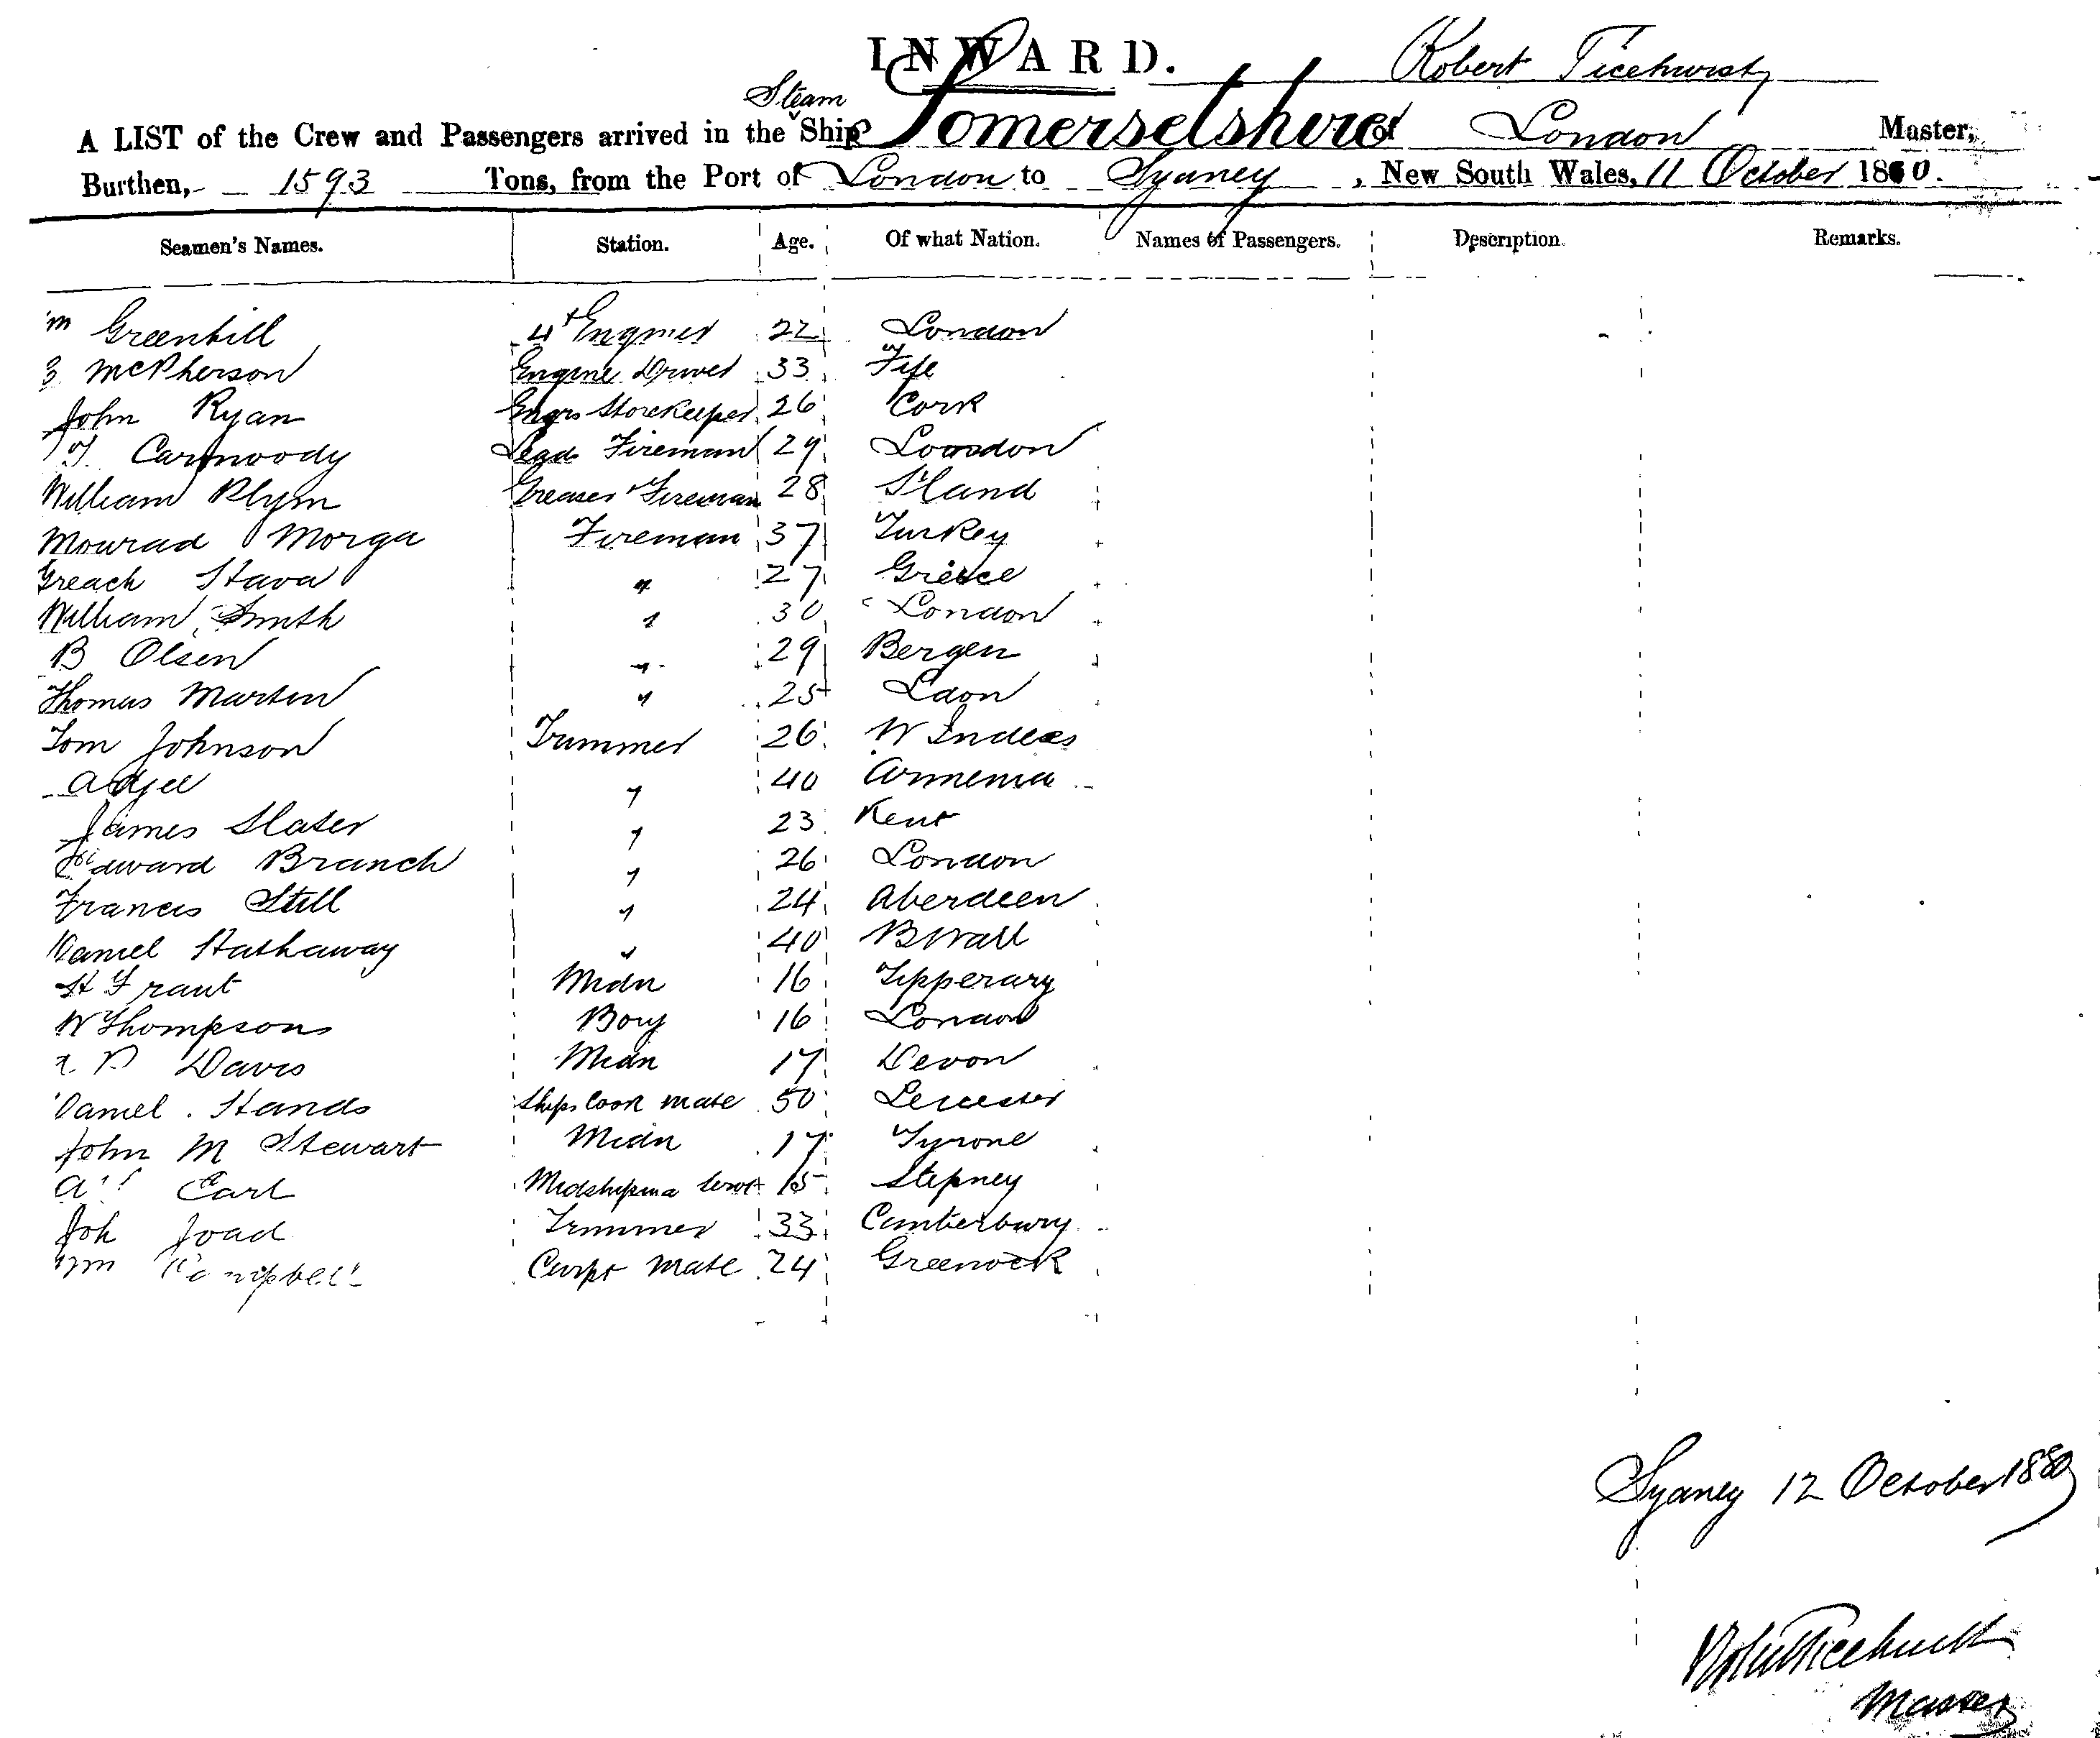 INWARD. Robert Ticehurst
A LIST of the Crew and Passengers arrived in the Steam Ship Somersetshire of London Master,
Burthen, 1593 Tons, from the Port of London to Sydney, New South Wales, 11 October 1880.
Seamen's Names. Station. Age. Of what Nation. Names of Passengers. Description. Remarks.
Greenhill 4th Engineer 22 London
McPherson Engine Driver 33 Fife
John Ryan Engrs Storekeeper 26 Cork
T Carmoody Lead Fireman 29 London
William Plym Greaser & Fireman 28 Hand
Mourad Morga Fireman 37 Turkey
Greach Stava " 27 Greece
William Smith " 30 London
B Olsen " 29 Bergen
Thomas Martin " 25 Ldon
Tom Johnson Trimmer 26 W Indies
" 40 Armenia
James Slater " 23 Kent
Edward Branch " 26 London
Francis Still " 24 Aberdeen
Daniel Hathaway " 40 BWall
Midn 16 Tipperary
W Thompson Boy 16 London
Davis Midn 17 Devon
Daniel Hands Ships Cook mate 50 Leicester
John M Stewart Midn 17 Tyrone
Earl 15 Stepney
Joh Joad Trimmer 33 Canterbury
Wm Campbell Carpt Mate 24 Greenock
Sydney 12 October 1880
Robt Ticehurst
Master